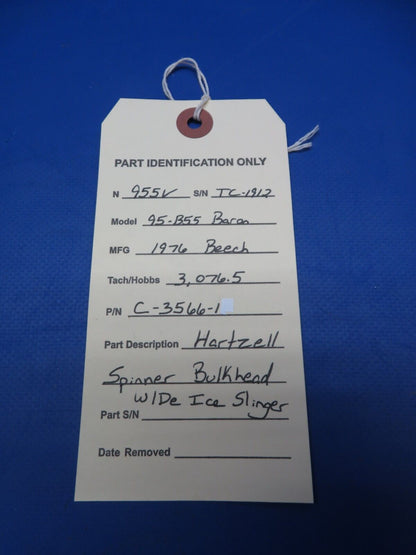 PART IDENTIFICATION ONLY
N 955V S/N TC-1912
Model 95-B55 Baron
MFG 1976 Beech
Tach/Hobbs 3,076.5
P/N C-3566-1
Part Description Hartzell
Spinner Bulkhead
W/De Ice Slinger
Part S/N
Date Removed